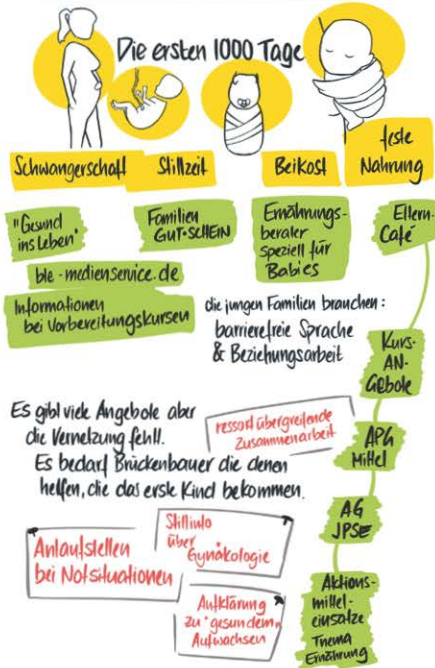 Die ersten 1000 Tage
Schwangerschaft
Stillzeit
Beikost
feste
Nahrung
"Gesund
ins Leben"
Familien
GUT•SCHEIN
Ernährungs-
berater
speziell für
Babies
Eltern-
Café
ble-medienservice.de
Informationen
bei Vorbereitungskursen
die jungen Familien brauchen:
barrierefreie Sprache
& Beziehungsarbeit
Kurs-
AN-
Gebote
Es gibt viele Angebote aber
die Vernetzung fehlt.
Es bedarf Brückenbauer die denen
helfen, die das erste Kind bekommen.
ressortübergreifende
Zusammenarbeit
APG
Mittel
AG
JPSE
Stillinfo
über
Gynäkologie
Anlaufstellen
bei Notsituationen
Aufklärung
zu "gesundem"
Aufwachsen
Aktions-
mittel-
einsätze
Thema
Ernährung